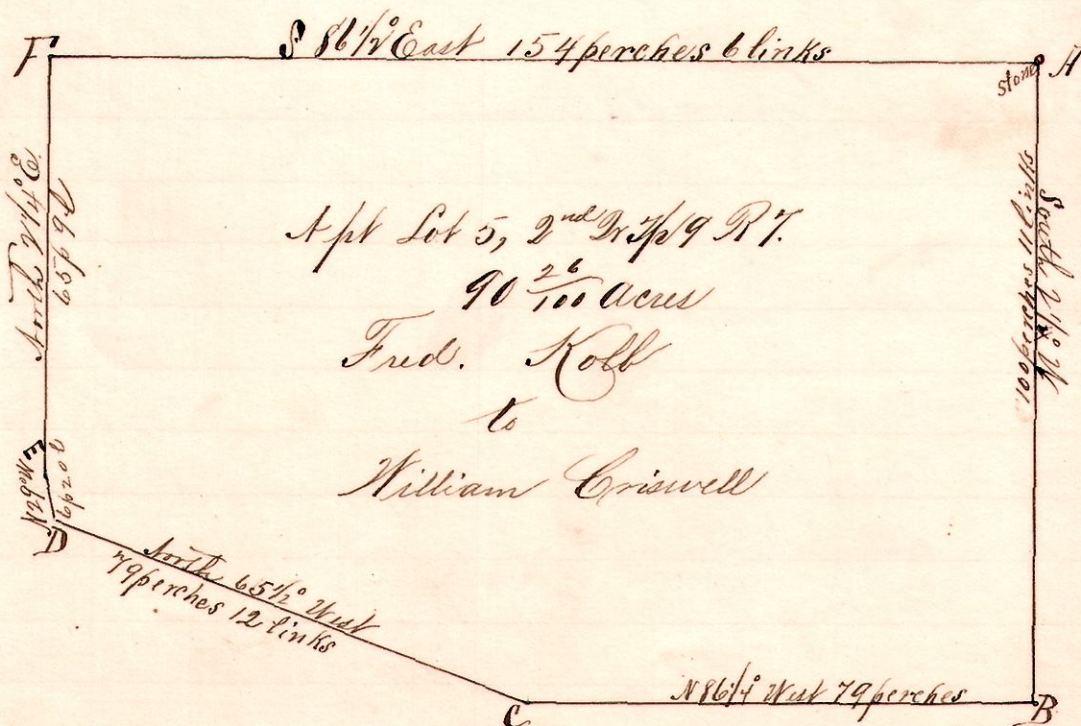 S 86 1/2° East 154 perches 6 links
F
A
stone
South 2 1/4° W
100 perches 11 links
A pt Lot 5, 2nd Qr Tp 9 R 7.
90 26/100 Acres
Fred. Kolb
to
William Criswell
E
D
North 65 1/2° West
79 perches 12 links
N 86 1/4° West 79 perches
C
B